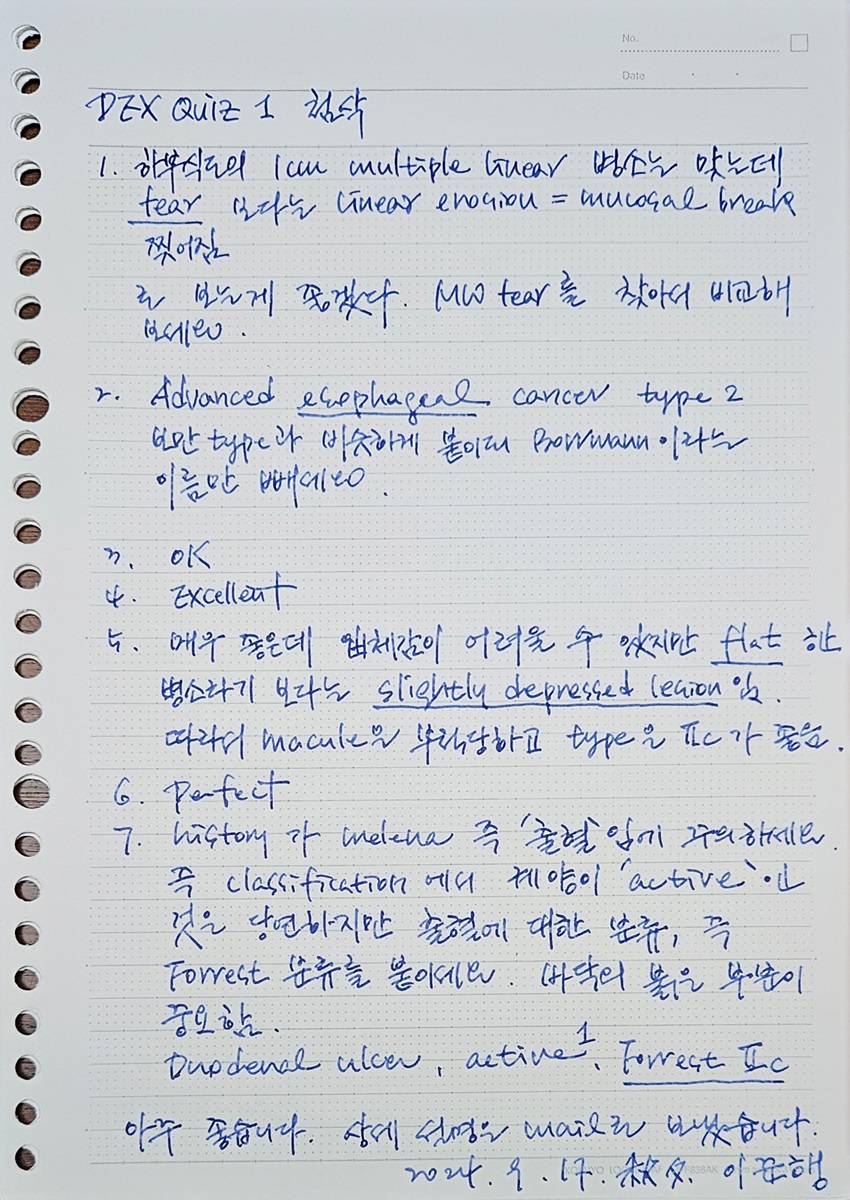 No.
Date
DEX QUIZ 1 첨삭
1. 하부식도의 1cm multiple linear 병소는 맞는데
tear 보다는 linear erosion = mucosal break
찢어짐
로 보는게 좋겠다. MW tear를 찾아서 비교해
보세요.
2. Advanced esophageal cancer type 2
보만 type과 비슷하게 붙이되 Borrmann이라는
이름만 빼세요.
3. OK
4. Excellent
5. 매우 좋은데 입체감이 어려울 수 있지만 flat 한
병소라기 보다는 slightly depressed lesion임.
따라서 macule은 부적당하고 type은 IIc가 좋음.
6. Perfect
7. history가 melena 즉 '출혈'임에 주의하세요.
즉 classification에서 궤양이 'active'인
것은 당연하지만 출혈에 대한 분류, 즉
Forrest 분류를 붙이세요. 바닥의 붉은 부분이
중요함.
Duodenal ulcer, active1, Forrest IIc
아주 좋습니다. 상세 설명은 mail로 보냈습니다.
2024. 9. 17. 秋夕 이준행